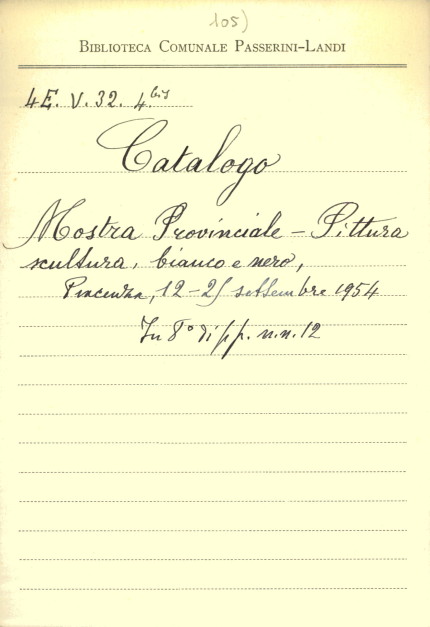 105)
BIBLIOTECA COMUNALE PASSERINI-LANDI
4E. V. 32. 4.bis
Catalogo
Mostra Provinciale - Pittura
scultura, bianco e nero,
Piacenza, 12-25 settembre 1954
In 8° di pp. n.n. 12